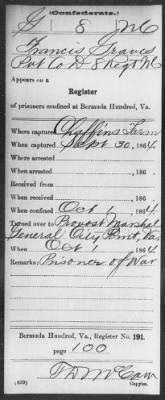 (Confederate.)
G 8 NC
Francis Graves
Pvt Co D 8 Regt NC
Appears on a
Register
of prisoners confined at Bermuda Hundred, Va.
Where captured Chaffins Farm
When captured Sept 30, 1864
Where arrested
When arrested , 186 .
Received from
When received , 186 .
Confined Oct 1 , 1864
Turned over to Provost Marshal
General City Point, Va
When Oct 1 , 1864
Remarks: Prisoner of War
Bermuda Hundred, Va., Register No. 191,
page 100
T D McCaw
(639) Copyist.